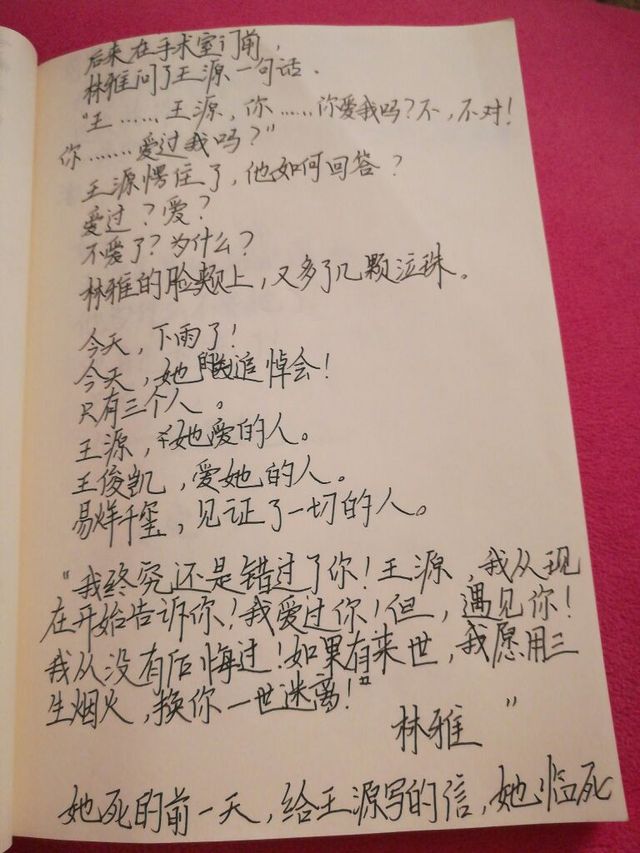 后来在手术室门前，
林雅问了王源一句话．
“王……王源，你……你爱我吗？不，不对！
你……爱过我吗？”
王源愣住了，他如何回答？
爱过？爱？
不爱了？为什么？
林雅的脸颊上，又多了几颗泣珠。
今天，下雨了！
今天，她追悼会！
只有三个人。
王源，她爱的人。
王俊凯，爱她的人。
易烊千玺，见证了一切的人。
“我终究还是错过了你！王源，我从现
在开始告诉你！我爱过你！但，遇见你！
我从没有后悔过！如果有来世，我愿用三
生烟火，换你一世迷离！”
林雅”
她死的前一天，给王源写的信，她临死